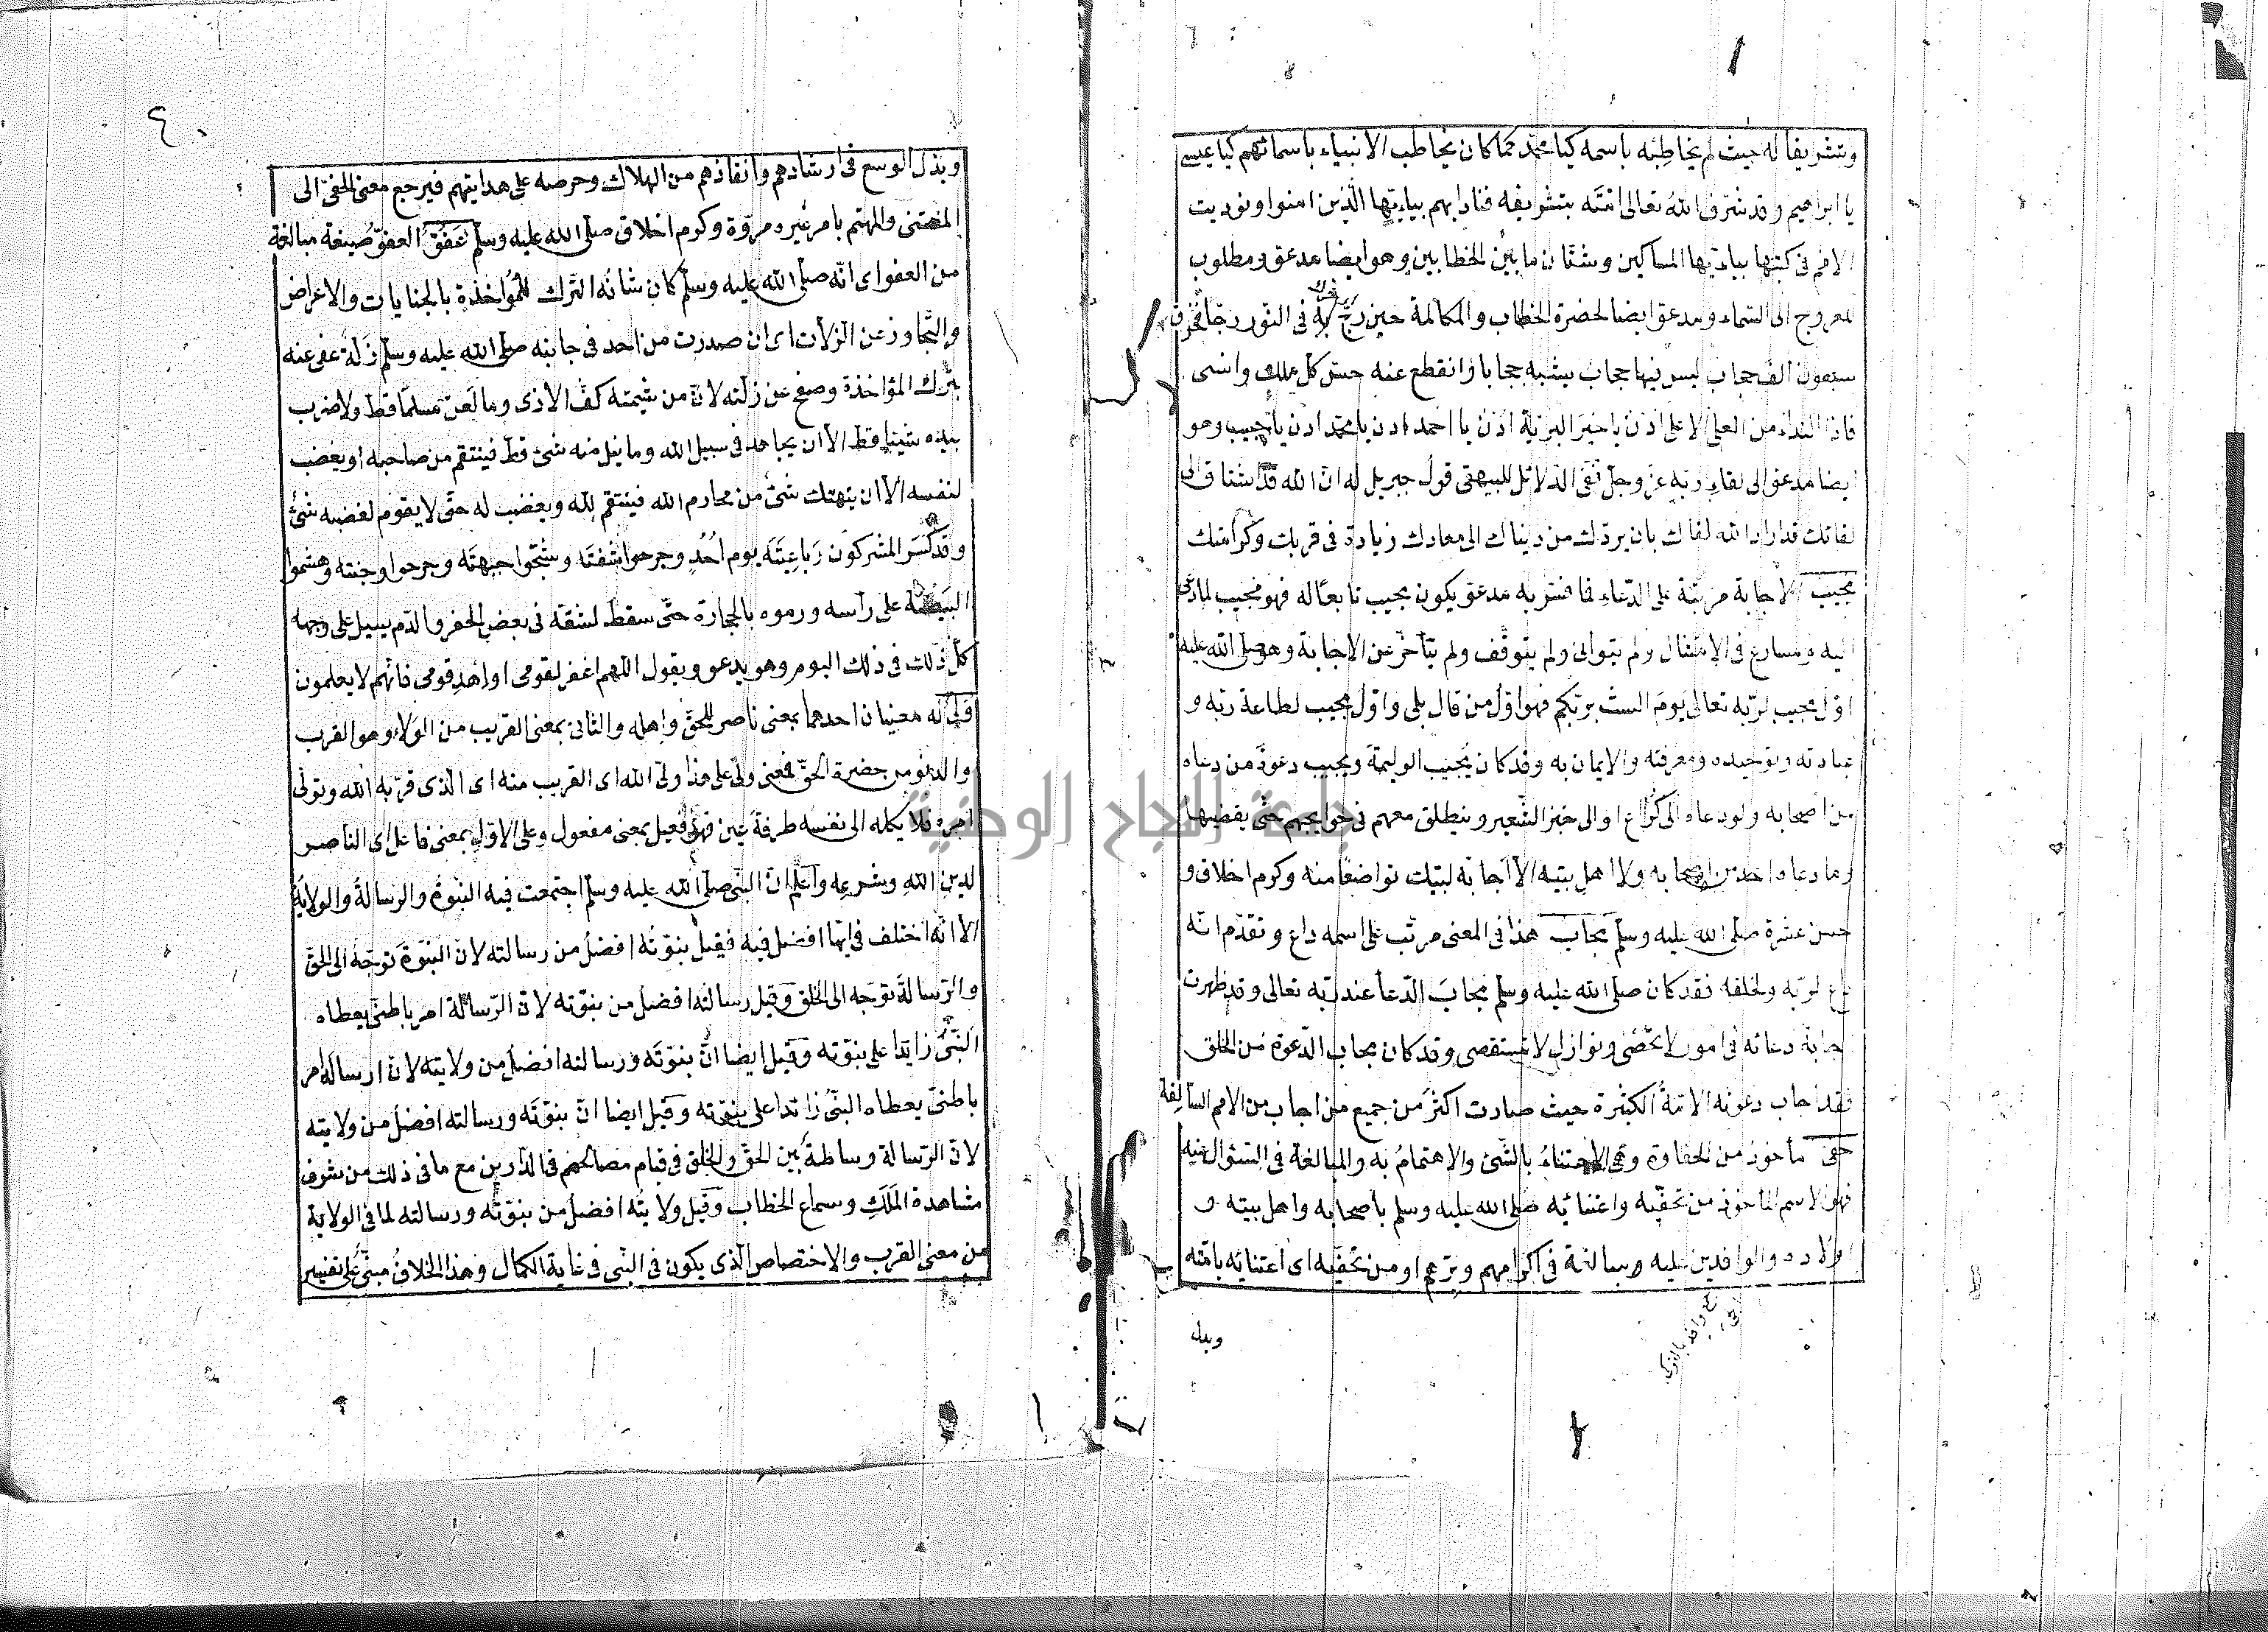 وتشريفا له حيث لم يخاطبه باسمه كيا محمد كما كان يخاطب الانبياء باسمائهم كيا عيسى
يا ابراهيم وقد شرف الله تعالى امته بتشريفه فناداهم بياءيها الذين امنوا ونوديت
الامم في كتبها بياءيها المساكين وشتان ما بين الخطابين وهو ايضا مدعو ومطلوب
للعروج الى السماء ومدعو ايضا لحضرة الخطاب والمكالمة حين زج به في النور زجا فخرق
سبعون الف حجاب ليس فيها حجاب يشبه حجابا وانقطع عنه حس كل ملك وانسى
فاذا النداء من العلي الاعلى ادن يا خير البرية ادن يا احمد ادن يا محمد ادن يا حبيب وهو
ايضا مدعو الى لقاء ربه عز وجل ففي الدلائل للبيهقي قول جبريل له ان الله قد اشتاق الى
لقائك قد اراد الله لقاك بان يردك من دنياك الى معادك زيادة في قربك وكرامتك
مجيب الاجابة مرتبة على الدعاء فما فسر به مدعو يكون مجيب تابعا له فهو مجيب لما دعي
اليه ومسارع في الامتثال ولم يتوانى ولم يتوقف ولم يتأخر عن الاجابة وهو صلى الله عليه
اول مجيب لربه تعالى يوم الست بربكم فهو اول من قال بلى واول مجيب لطاعة ربه و
عبادته وتوحيده ومعرفته والايمان به وقد كان يجيب الوليمة ويجيب دعوة من دعاه
من اصحابه ولو دعاه الى كراع او الى خبز الشعير وينطلق معهم في حوايجهم حتى يقضيها
وما دعا واحد من اصحابه ولا اهل بيته الا اجابه لبيك تواضعا منه وكرم اخلاق و
حسن عشرة صلى الله عليه وسلم مجاب هذا في المعنى مرتب على اسمه داع وتقدم انه
داع لربه ولخلقه فقد كان صلى الله عليه وسلم مجاب الدعا عند ربه تعالى وقد ظهرت
اجابة دعائه في امور لا تحصى ونوازل لا تستقصى وقد كان مجاب الدعوة من الخلق
فقد اجاب دعوته الامة الكثيرة حيث صارت اكثر من جميع من اجاب من الامم السالفة
حفي مأخوذ من الحفاوة وهي الاعتناء بالشئ والاهتمام به والمبالغة في السئوال عنه
فهو الاسم المأخوذ من تحفيه واعتنائه صلى الله عليه وسلم بأصحابه واهل بيته و
اولاده والوافدين عليه ومبالغة في اكرامهم وبرهم او من تحفيه اى اعتنائه بامته
وبذل
وبذل الوسع في ارشادهم وانقاذهم من الهلاك وحرصه على هدايتهم فيرجع معنى الحفي الى
المعتنى والمهتم بامر غيره مروة وكرم اخلاق صلى الله عليه وسلم عفو العفو صيغة مبالغة
من العفو اى انه صلى الله عليه وسلم كان شانه الترك للمؤاخذة بالجنايات والاعراض
والتجاوز عن الزلات اى ان صدرت من احد في جانبه صلى الله عليه وسلم زلة عفى عنه
بترك المؤاخذة وصفح عن زلته لان من شيمته كف الاذى وما لعن مسلما قط ولا ضرب
بيده شيئا قط الا ان يجاهد في سبيل الله وما نيل منه شئ قط فينتقم من صاحبه او يغضب
لنفسه الا ان ينهتك شئ من محارم الله فينتقم لله ويغضب له حتى لا يقوم لغضبه شئ
وقد كسر المشركون رباعيته يوم احد وجرحوا شفته وشجوا جبهته وجرحوا وجنته وهشموا
البيضة على رأسه ورموه بالحجارة حتى سقط لشقه في بعض الحفر والدم يسيل على وجهه
كل ذلك في ذلك اليوم وهو يدعو ويقول اللهم اغفر لقومى او اهد قومى فانهم لا يعلمون
ولي له معنيان احدهما بمعنى ناصر للحق واهله والثانى بمعنى القريب من الولاء وهو القرب
والدنو من حضرة الحق فمعنى ولي على هذا ولي الله اى القريب منه اى الذى قربه الله وتولى
امره فلا يكله الى نفسه طرفة عين فهو فعيل بمعنى مفعول وعلى الاول بمعنى فاعل اى الناصر
لدين الله وشرعه واعلم ان النبي صلى الله عليه وسلم اجتمعت فيه النبوة والرسالة والولاية
الا انه اختلف في ايها افضل فيه فقيل نبوته افضل من رسالته لان النبوة توجه الى الحق
والرسالة توجه الى الخلق وقيل رسالته افضل من نبوته لان الرسالة امر باطني يعطاه
النبي زايدا على نبوته وقيل ايضا ان نبوته ورسالته افضل من ولايته لان الرسالة امر
باطني يعطاه النبي زائدا على نبوته وقيل ايضا ان نبوته ورسالته افضل من ولايته
لان الرسالة وساطة بين الحق والخلق في قيام مصالحهم في الدارين مع ما في ذلك من شرف
مشاهدة الملك وسماع الخطاب وقيل ولايته افضل من نبوته ورسالته لما في الولاية
من معنى القرب والاختصاص الذى يكون في النبي في غاية الكمال وهذا الخلاف مبني على تفسير
جامعة النجاح الوطنية